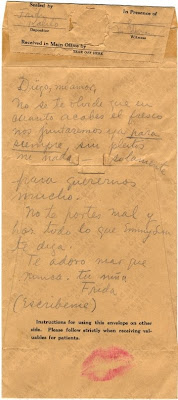 Sealed by In Presence of
Depositor Witness
Received in Main Office by
Diego, mi amor,
No se te olvide que en
cuanto acabes el fresco
nos juntaremos ya para
siempre, sin pleitos
ni nada, solamente
para querernos
mucho.
No te portes mal y
haz todo lo que Emmy Lou
te diga.
Te adoro mas que
nunca. tu niña
Frida
(Escribeme)
Instructions for using this envelope on other
side. Please follow strictly when receiving val-
uables for patients.